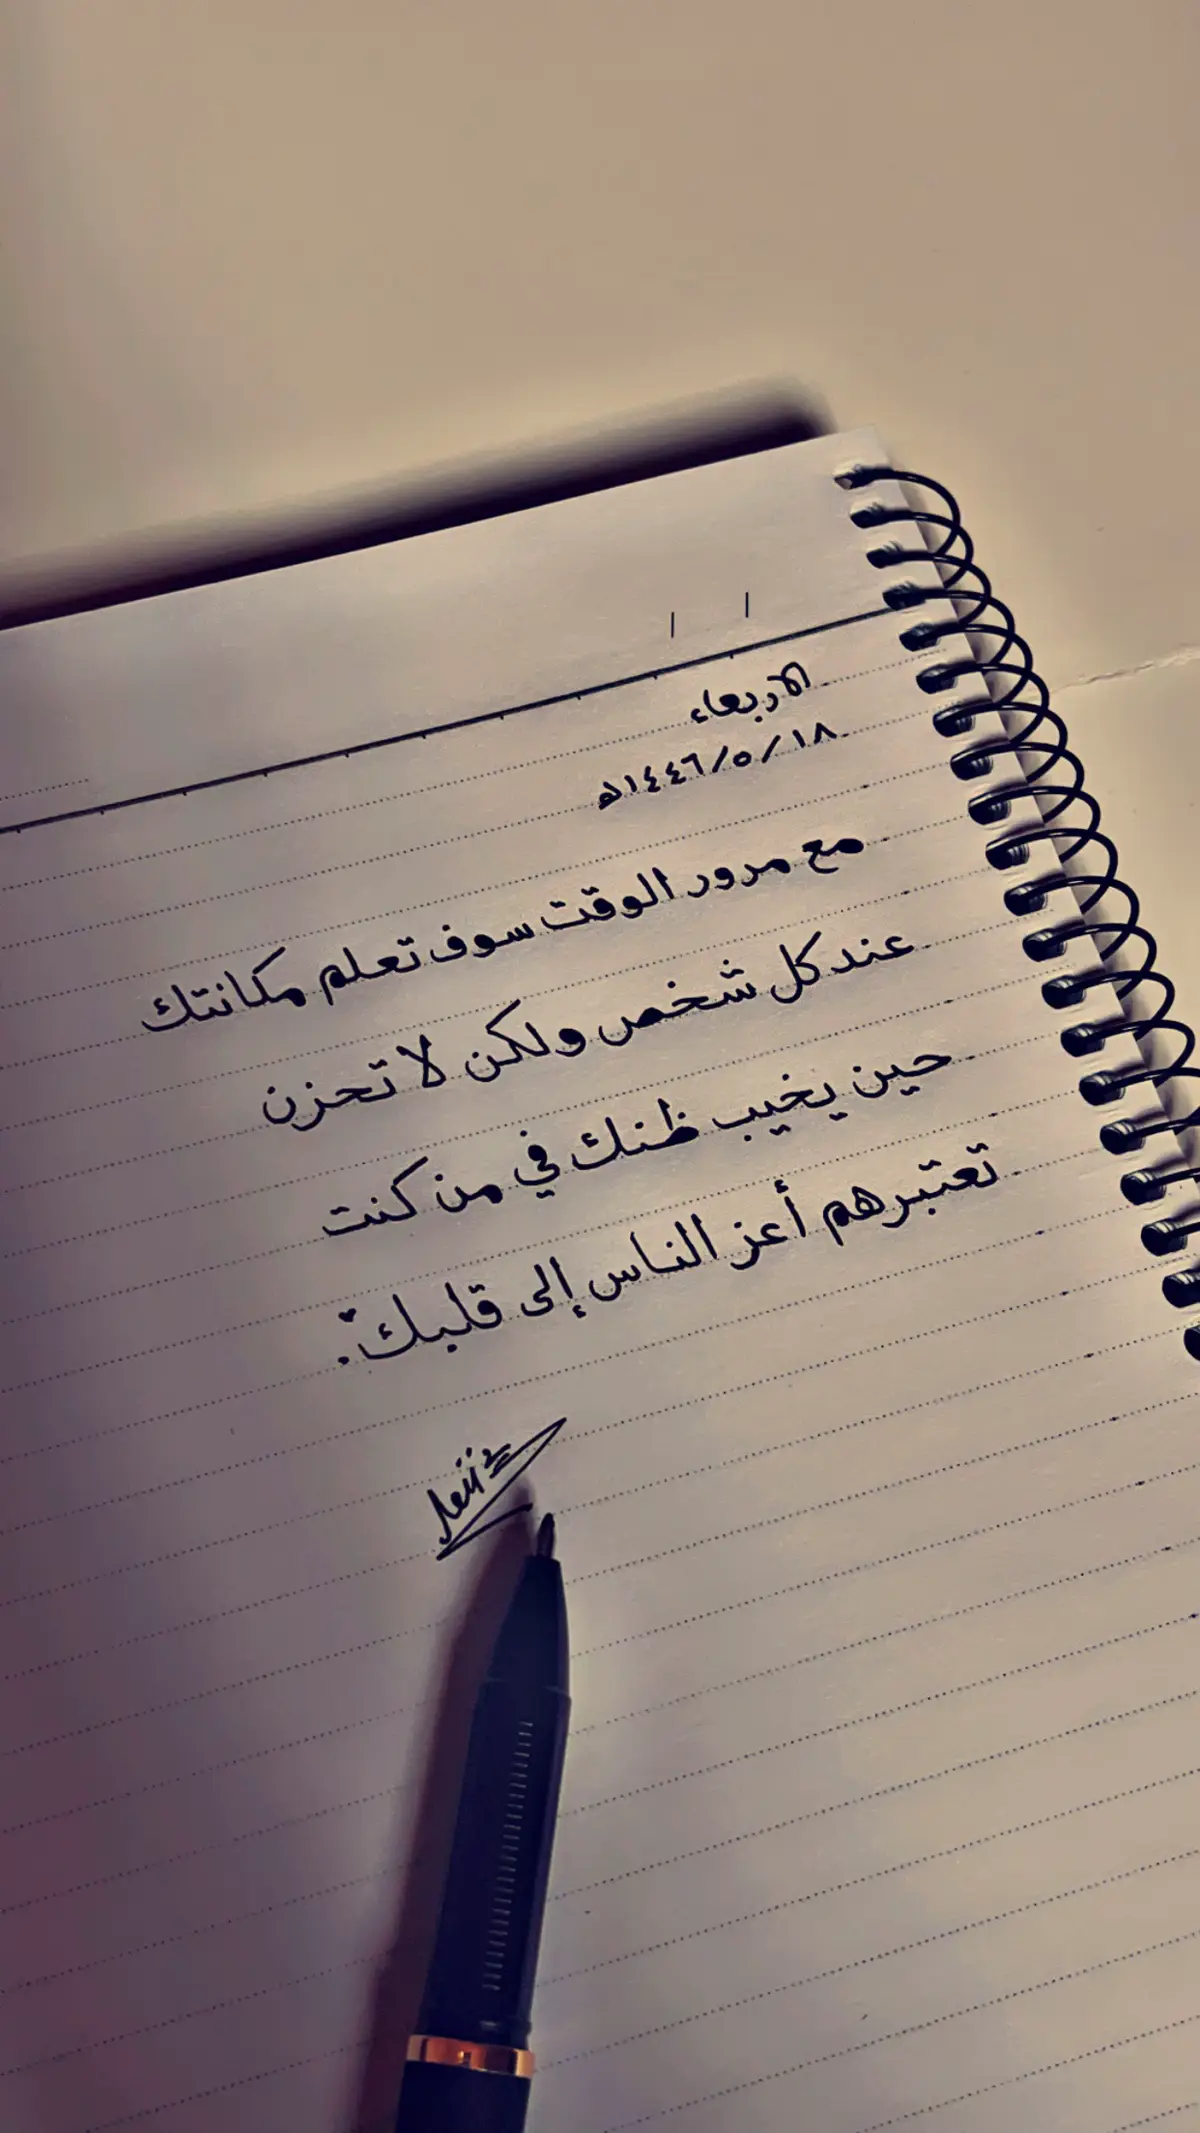 الاربعاء
١٨/٥/١٤٤٦هـ
مع مرور الوقت سوف تعلم مكانتك
عند كل شخص ولكن لا تحزن
حين يخيب ظنك في من كنت
تعتبرهم أعز الناس إلى قلبك.